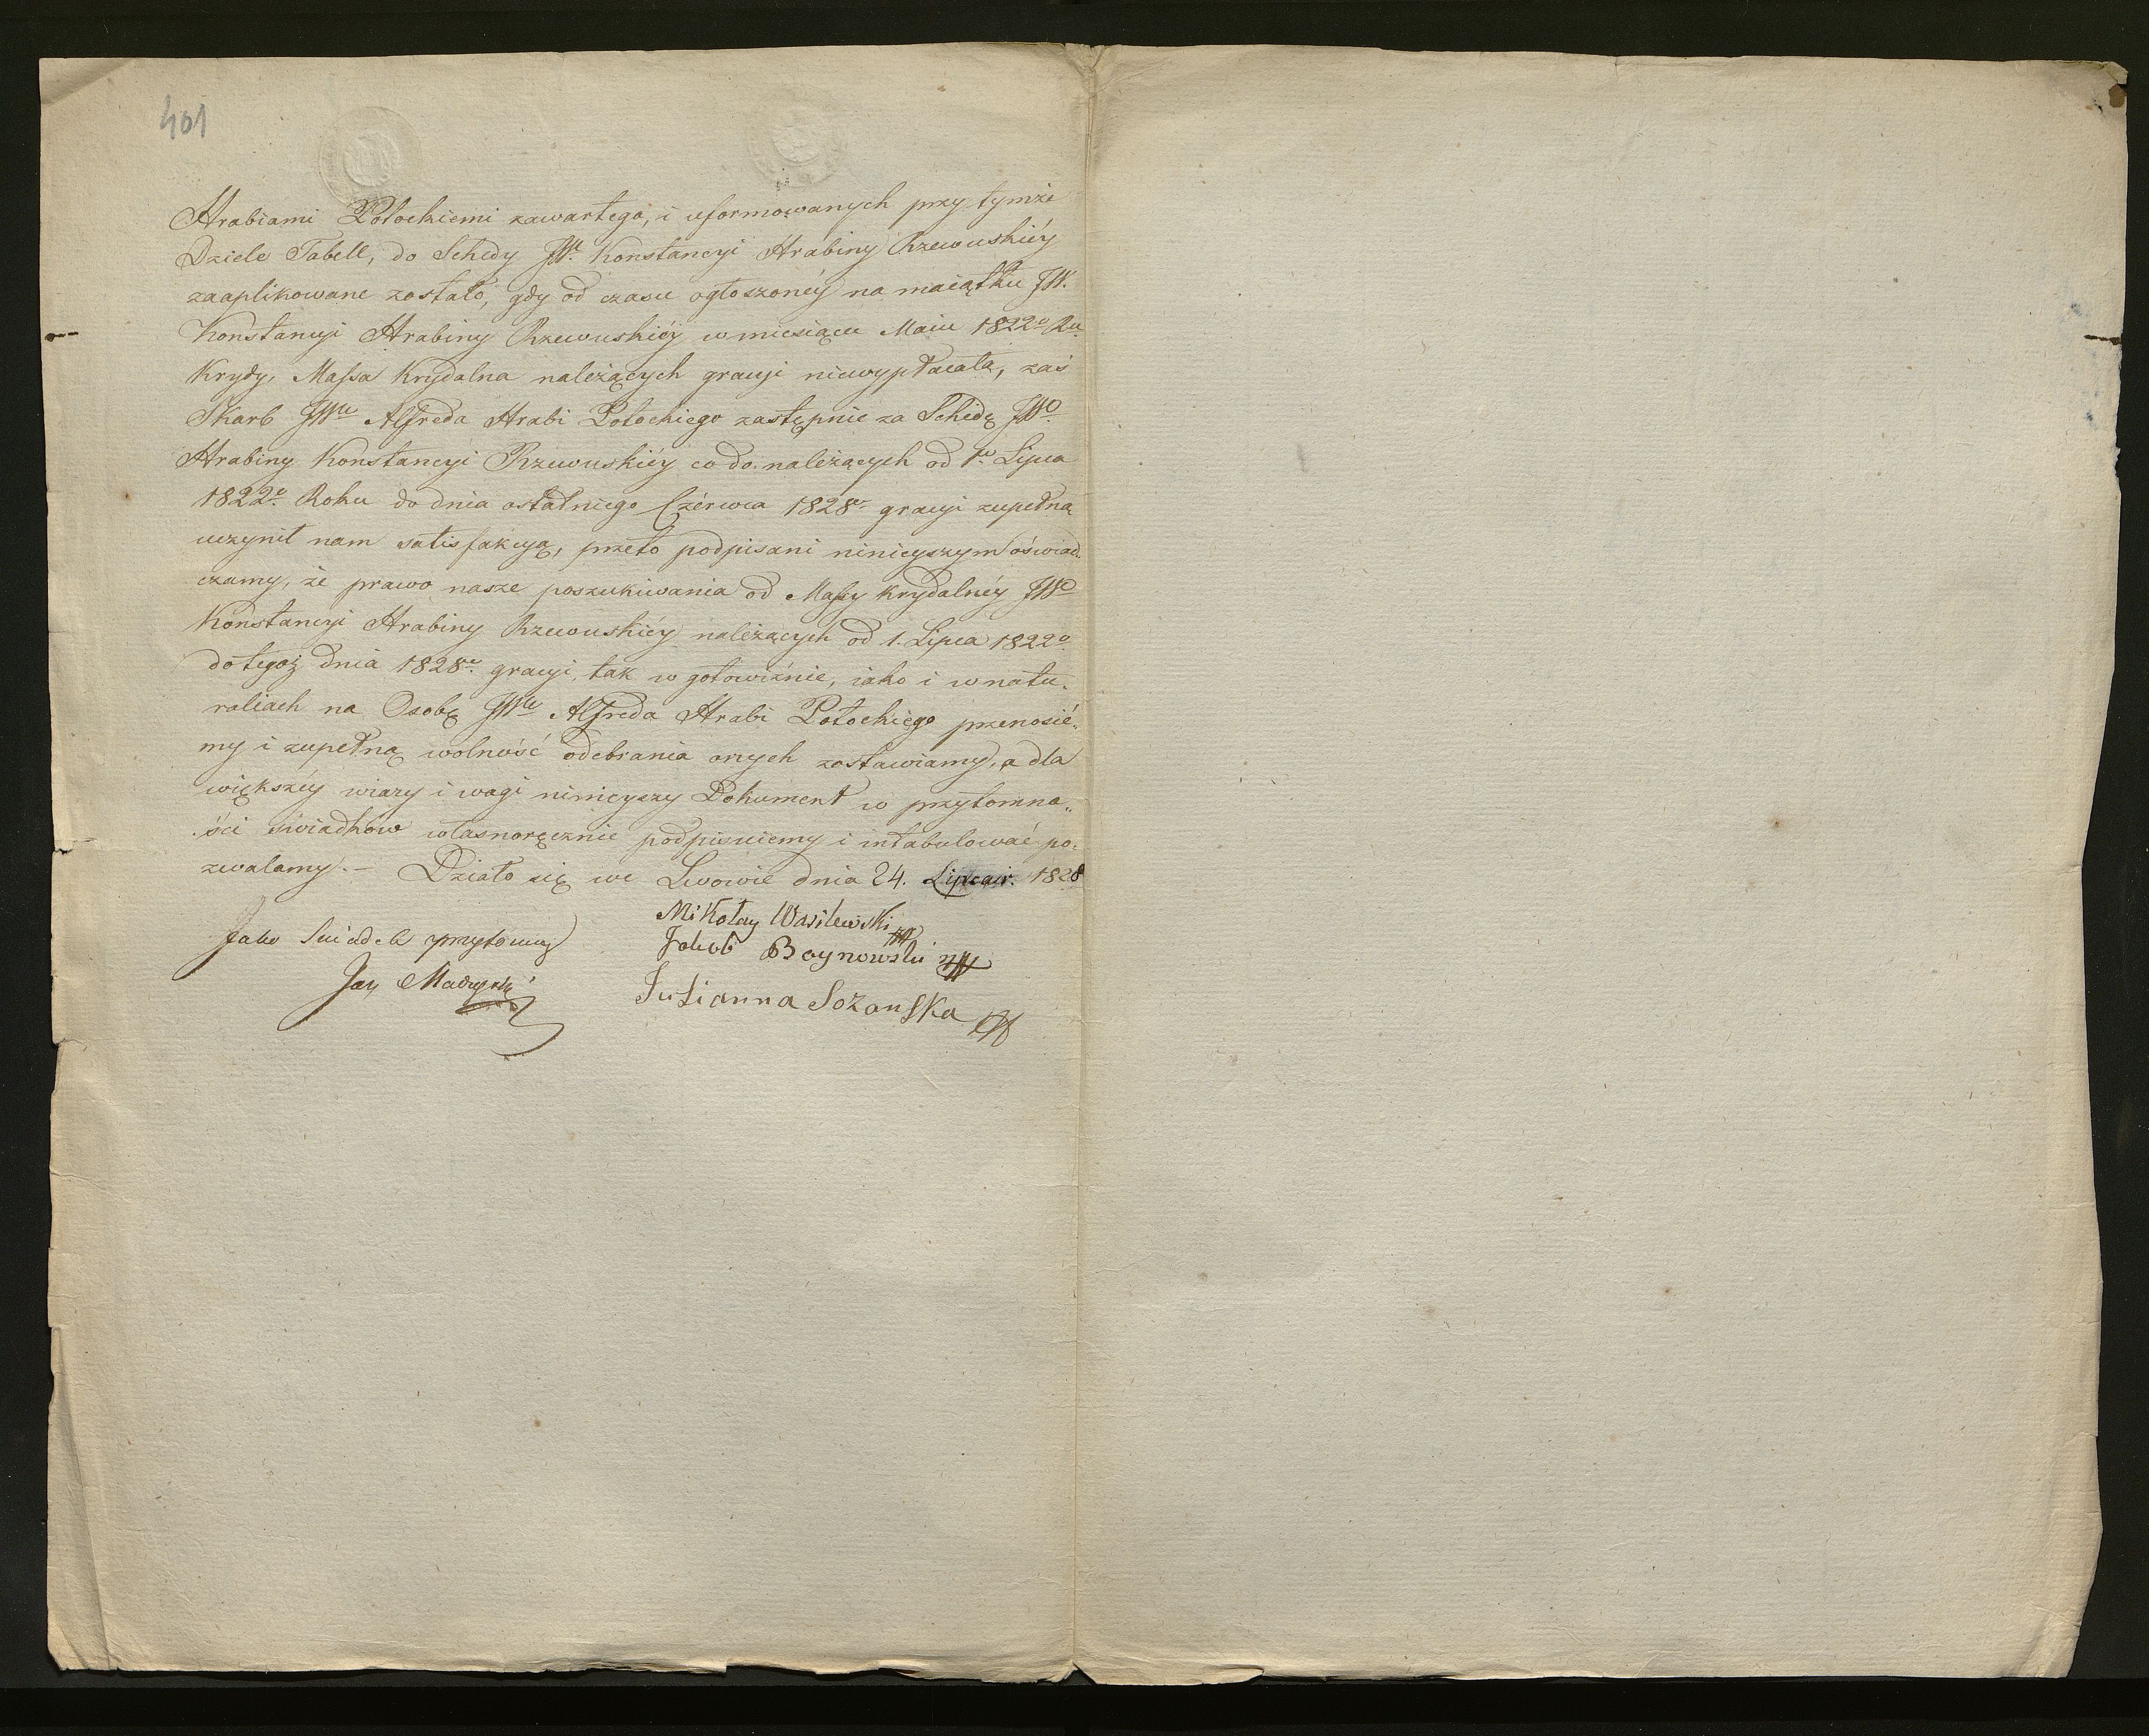 401
Hrabiami Potockiemi zawartego, i uformowanych przy tymże
Dziele Tabell, do Schedy JW. Konstancyi Hrabiny Rzewuskiéy
zaaplikowane zostało, gdy od czasu ogłoszonéy na maiątku JW.
Konstancyi Hrabiny Rzewuskiéy w miesiącu Maiu 1822o Ru
Krydy, Massa Krydalna należących gracyi niewypłacała, zaś
Skarb JWo Alfreda Hrabi Potockiego zastępnie za Schedę JWo
Hrabiny Konstancyi Rzewuskiéy co do należących od 1o Lipca
1822o Roku do dnia ostatniego Czérwca 1828o gracyi zupełną
uczynił nam satisfakcyą, przeto podpisani ninieyszym oświad„
czamy, że prawo nasze poszukiwania od Massy Krydalnéy JWo
Konstancyi Hrabiny Rzewuskiéy należących od 1. Lipca 1822o
do tegoż dnia 1828o gracyi, tak w gotowiźnie, iako i w natu„
raliach na Osobę JWo Alfreda Hrabi Potockiego przenosié„
my i zupełną wolność odebrania onych zostawiamy, a dla
większéy wiary i wagi ninieyszy Dokument w przytomno„
ści świadków własnoręcznie podpisuiemy i intabulować po„
zwalamy. – Działo się we Lwowie dnia 24. Lipca r. 1828
Mikołay Wasilewski mp
Jako Swiadek przytomny Jakób Boynowski mp
Jan Madeyski
Julianna Sozanska mp